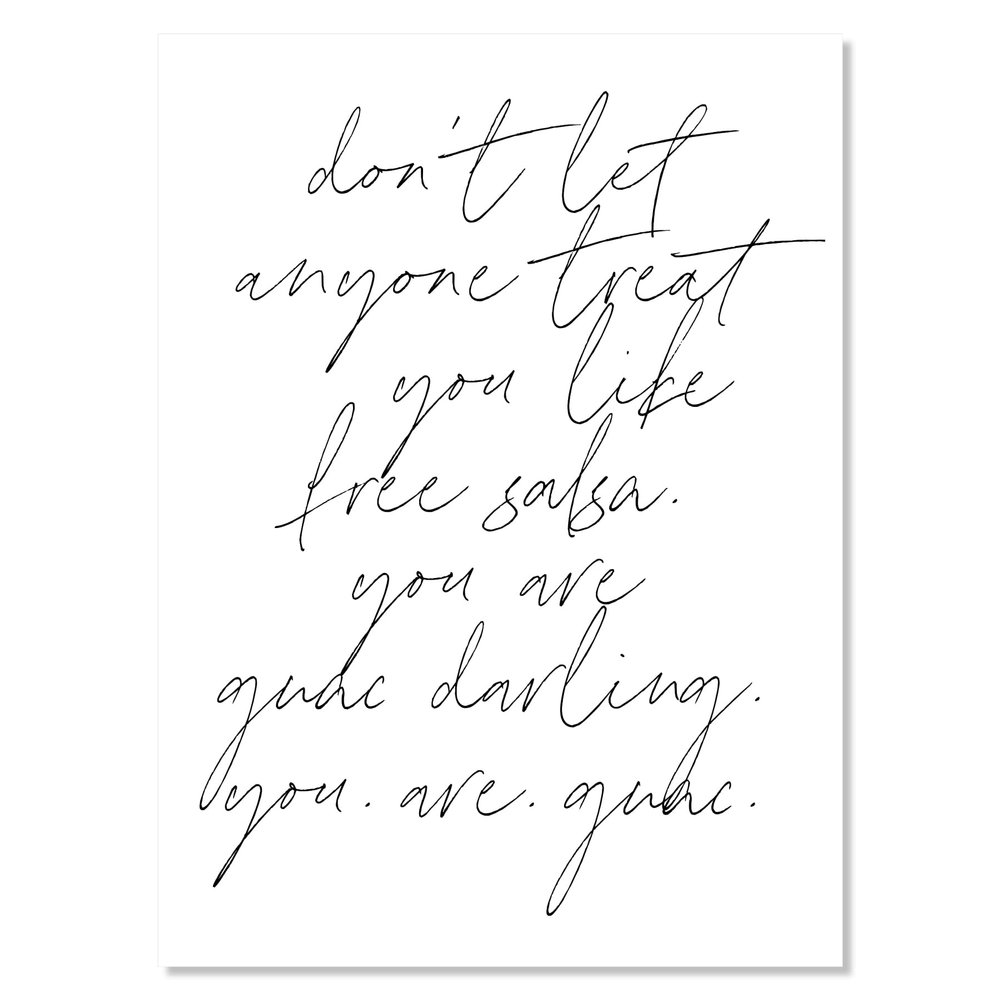 don't let
anyone treat
you like
free salsa.
you are
guac darling.
you. are. guac.